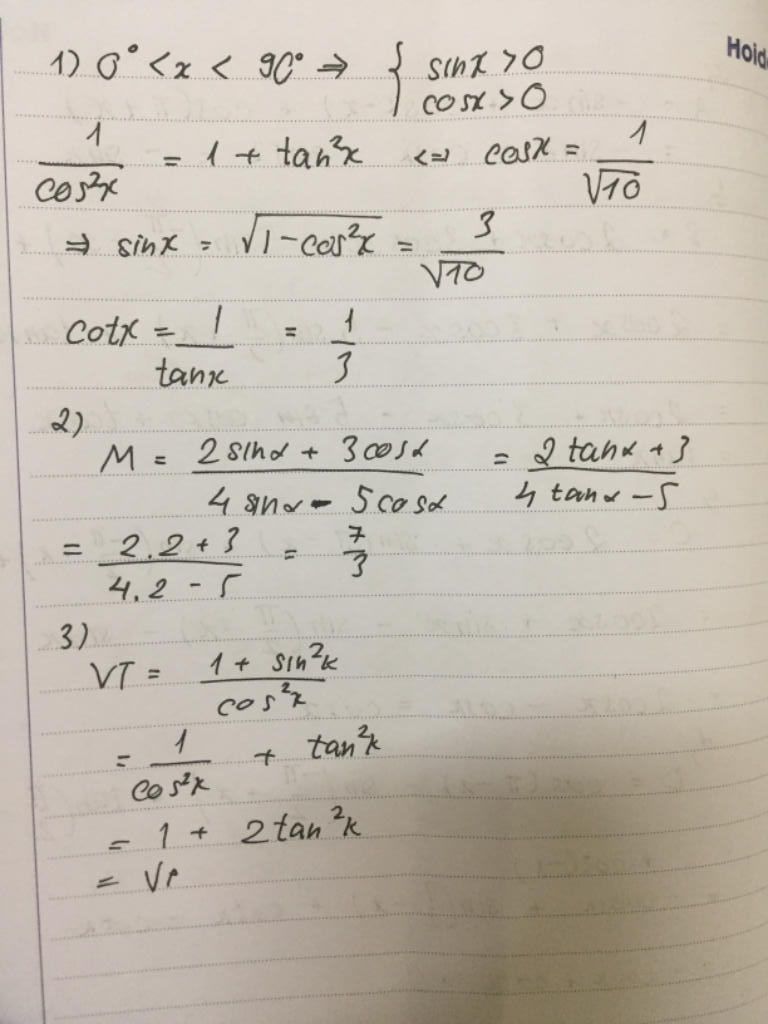 Hoid
1) 0° < x < 90° ⇒ { sinx > 0
cosx > 0
1/cos²x = 1 + tan²x <=> cosx = 1/√10
⇒ sinx = √(1-cos²x) = 3/√10
cotx = 1/tanx = 1/3
2)
M = (2 sinα + 3cosα)/(4 sinα - 5cosα) = (2 tanα + 3)/(4 tanα - 5)
= (2.2 + 3)/(4.2 - 5) = 7/3
3)
VT = (1 + sin²x)/cos²x
= 1/cos²x + tan²x
= 1 + 2tan²x
= VP